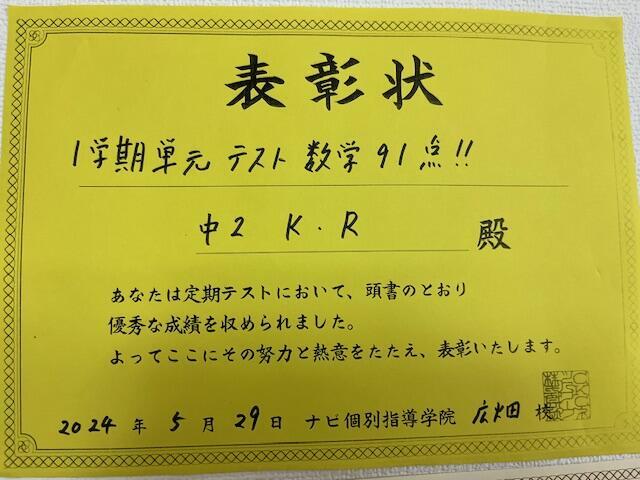 表彰状
1学期単元テスト 数学91点!!
中2 K.R 殿
あなたは定期テストにおいて、頭書のとおり
優秀な成績を収められました。
よってここにその努力と熱意をたたえ、表彰いたします。
2024年5月29日 ナビ個別指導学院 広畑校